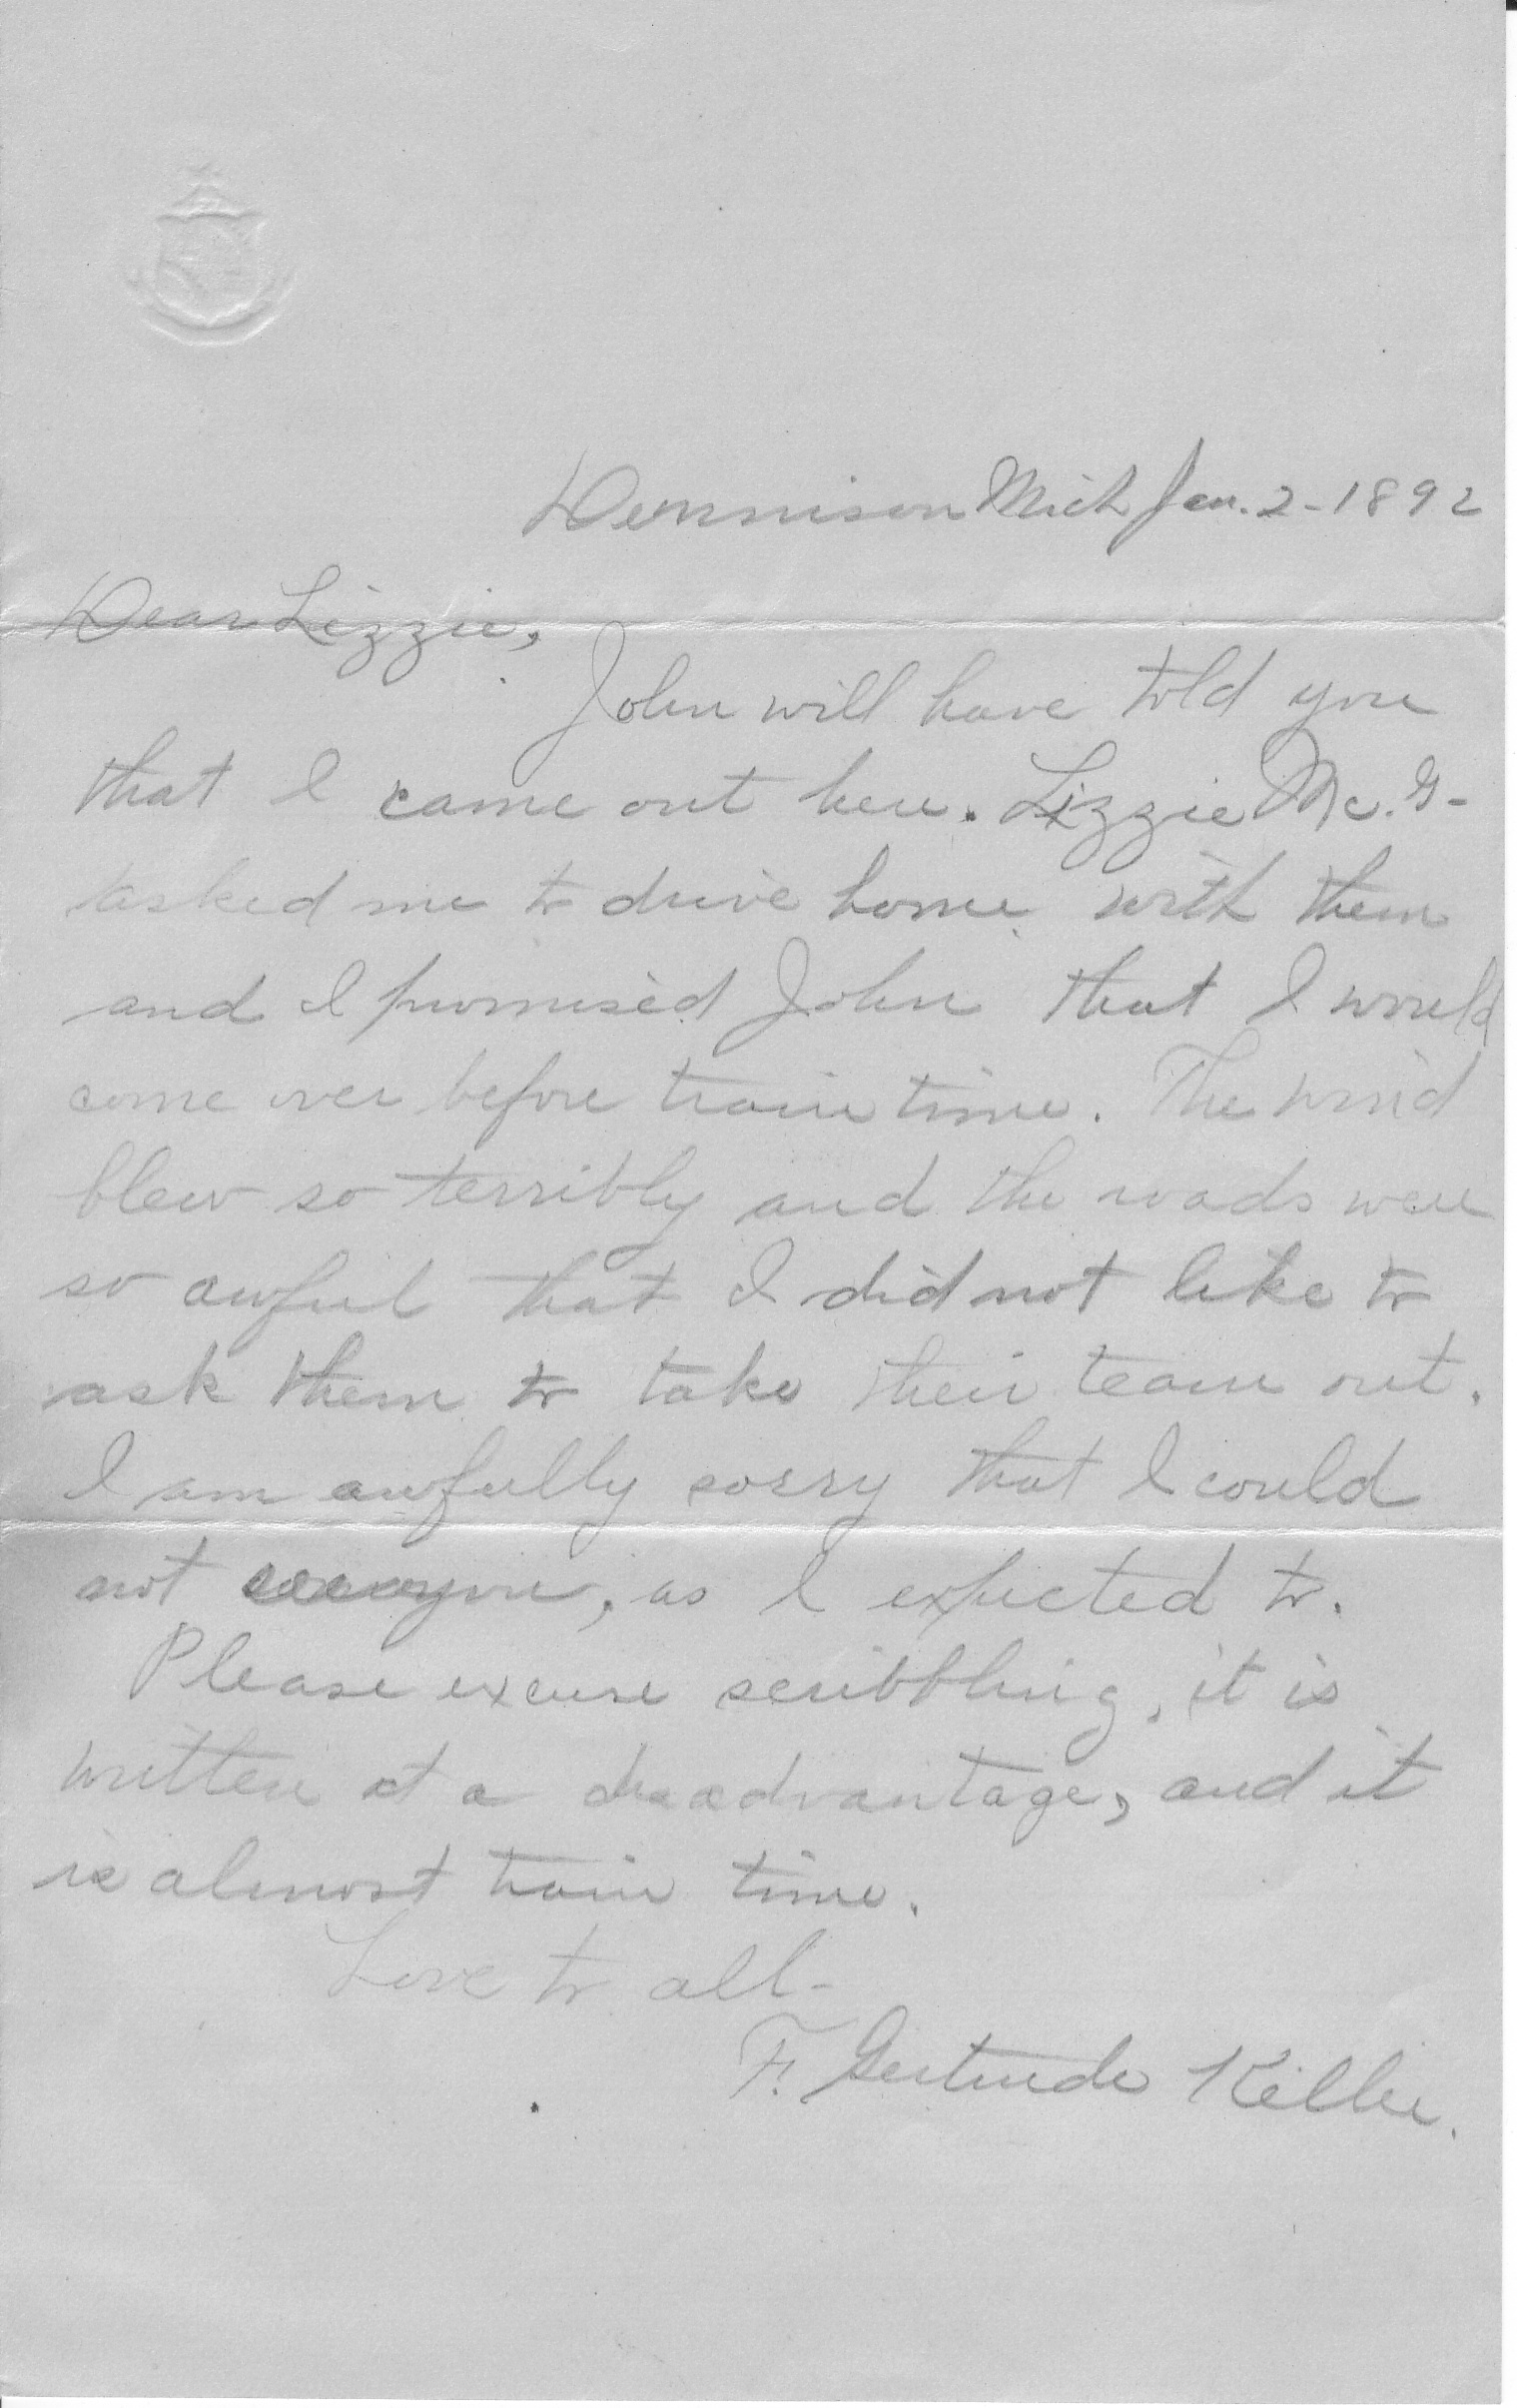 Dennison Mich Jan. 2-1892
Dear Lizzie,
John will have told you
that I came out here. Lizzie Mc. G-
asked me to drive home with them
and I promised John that I would
come over before train time. The wind
blew so terribly and the roads were
so awful that I did not like to
ask them to take their team out.
I am awfully sorry that I could
not you, as I expected to.
Please excuse scribbling, it is
written at a disadvantage, and it
is almost train time.
Love to all-
F. Gertrude Kellie.